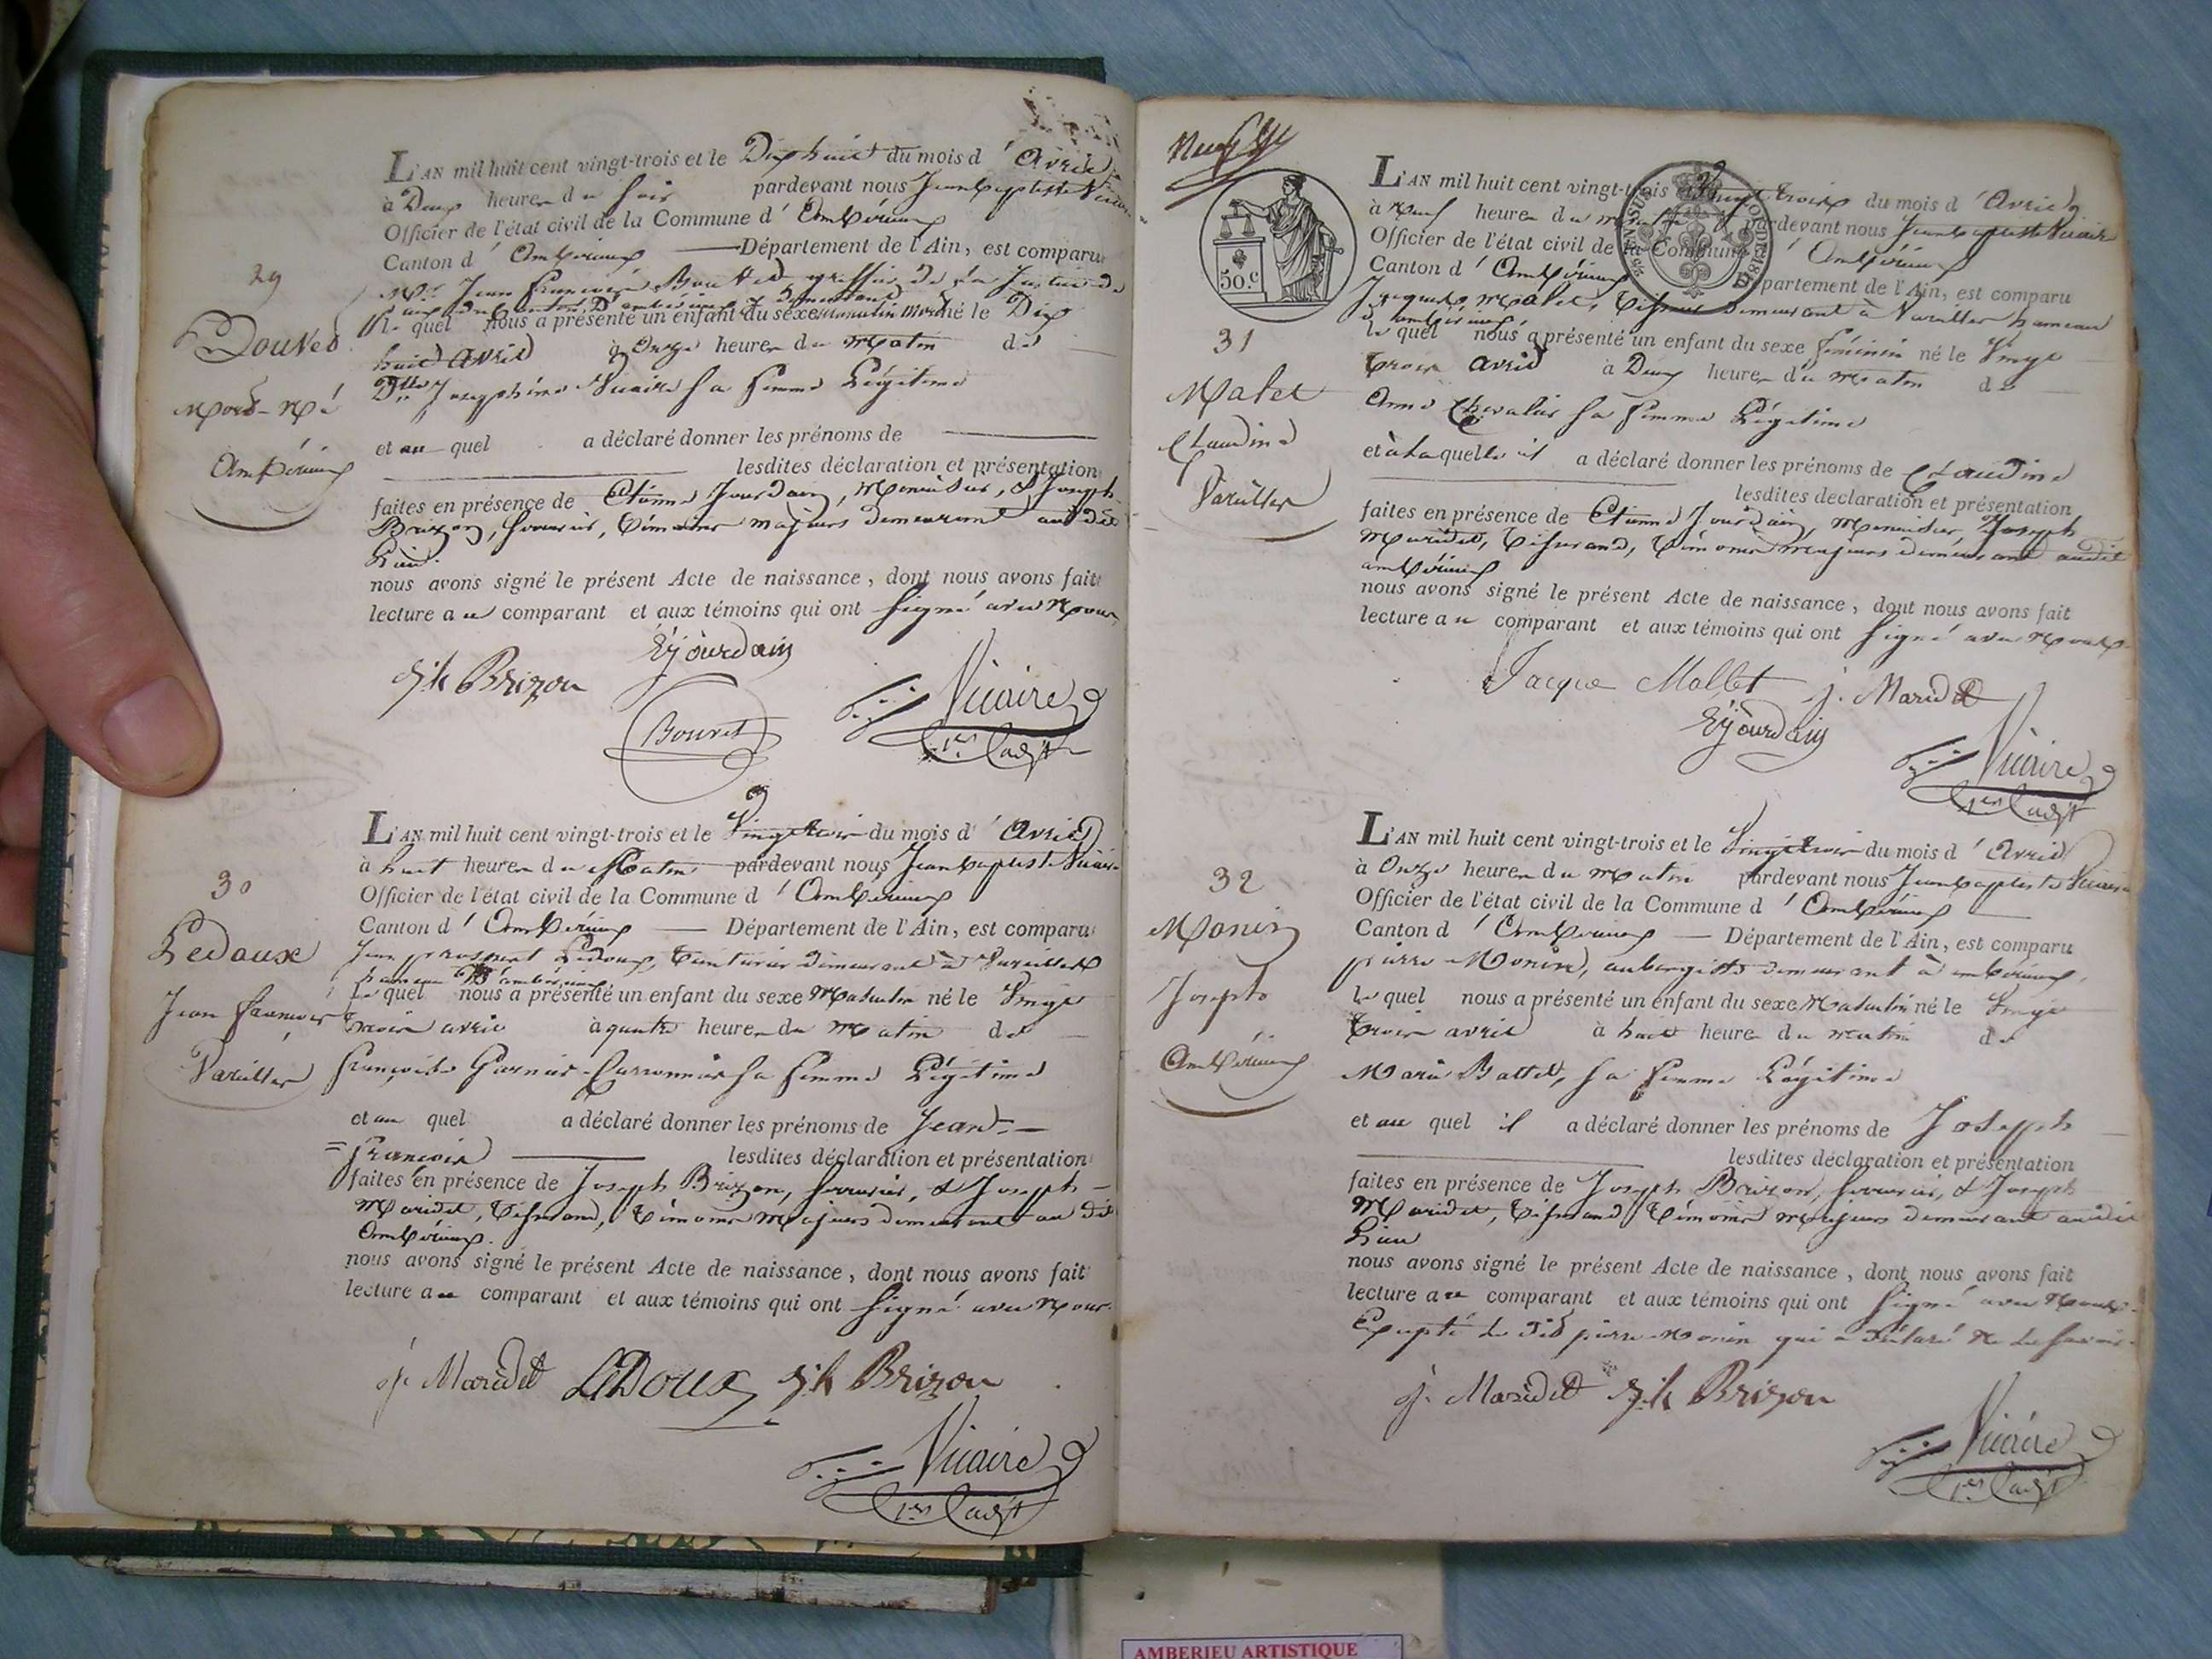 29
Bouvet
Mort-Né
Ambérieux
L'AN mil huit cent vingt-trois et le Dix huit du mois d'Avril
à Deux heures du soir pardevant nous Jean Baptiste Vicaire
Officier de l'état civil de la Commune d'Ambérieux
Canton d'Ambérieux Département de l'Ain, est comparu
Mre Jean François Bouvet greffier de la Justice de
paix du Canton D'ambérieux y demeurant
le quel nous a présenté un enfant du sexe Masculin Mort né le Dix
huit Avril à Onze heures du Matin de
Dlle Josephine Vicaire sa femme Légitime
et au quel a déclaré donner les prénoms de
lesdites déclaration et présentation
faites en présence de Etienne Jourdain, Menuisier, & Joseph
Brizon, serrurier, témoins majeurs demeurant audit
Lieu.
nous avons signé le présent Acte de naissance, dont nous avons fait
lecture au comparant et aux témoins qui ont signé avec Nous
Ejourdain
Brizon
Bouvet
Vicaire
1er adjt
30
Ledoux
Jean François
Vareilles
L'AN mil huit cent vingt-trois et le Vingt trois du mois d'Avril
à huit heures du Matin pardevant nous Jean Baptiste Vicaire
Officier de l'état civil de la Commune d'Ambérieux
Canton d'Ambérieux Département de l'Ain, est comparu
Jean Ledoux, teinturier demeurant à Vareilles
hameau D'ambérieux
le quel nous a présenté un enfant du sexe Masculin né le Vingt
trois avril à quatre heures du Matin de
françoise Garnier sa femme Légitime
et au quel a déclaré donner les prénoms de Jean
= françois lesdites déclaration et présentation
faites en présence de Joseph Brizon, serrurier, & Joseph
Maridet, tisserand, témoins Majeurs demeurant au dit
Ambérieux.
nous avons signé le présent Acte de naissance, dont nous avons fait
lecture au comparant et aux témoins qui ont signé avec Nous.
j. Maridet LEDOUX Brizon
Vicaire
1er adjt
50.c
31
Malet
Claudine
Vareilles
L'AN mil huit cent vingt-trois et le Vingt trois du mois d'Avril
à Neuf heures du matin pardevant nous Jean Baptiste Vicaire
Officier de l'état civil de la Commune d'Ambérieux
Canton d'Ambérieux Département de l'Ain, est comparu
Jacques Malet, tisseur demeurant à Vareilles hameau
d'ambérieux,
le quel nous a présenté un enfant du sexe féminin né le Vingt
trois Avril à Deux heures du Matin de
Anne Chevalier sa femme Légitime
et à laquelle il a déclaré donner les prénoms de Claudine
lesdites déclaration et présentation
faites en présence de Etienne Jourdain, Menuisier, & Joseph
Maridet, tisserand, témoins majeurs demeurant audit
ambérieux
nous avons signé le présent Acte de naissance, dont nous avons fait
lecture au comparant et aux témoins qui ont signé avec Nous
Jacque Mallet j. Maridet
Ejourdain
Vicaire
1er adjt
32
Monin
Joseph
Ambérieux
L'AN mil huit cent vingt-trois et le Vingt trois du mois d'Avril
à Onze heures du Matin pardevant nous Jean Baptiste Vicaire
Officier de l'état civil de la Commune d'Ambérieux
Canton d'Ambérieux Département de l'Ain, est comparu
pierre Monin, aubergiste demeurant à ambérieux,
le quel nous a présenté un enfant du sexe Masculin né le Vingt
trois avril à huit heures du matin de
Marie Battet, sa femme Légitime
et au quel il a déclaré donner les prénoms de Joseph
lesdites déclaration et présentation
faites en présence de Joseph Brizon, serrurier, & Joseph
Maridet, tisserand, témoins majeurs demeurant audit
Lieu
nous avons signé le présent Acte de naissance, dont nous avons fait
lecture au comparant et aux témoins qui ont signé avec Nous
Excepté le dit pierre Monin qui a déclaré ne le savoir.
j. Maridet Brizon
Vicaire
1er adjt
AMBERIEU ARTISTIQUE